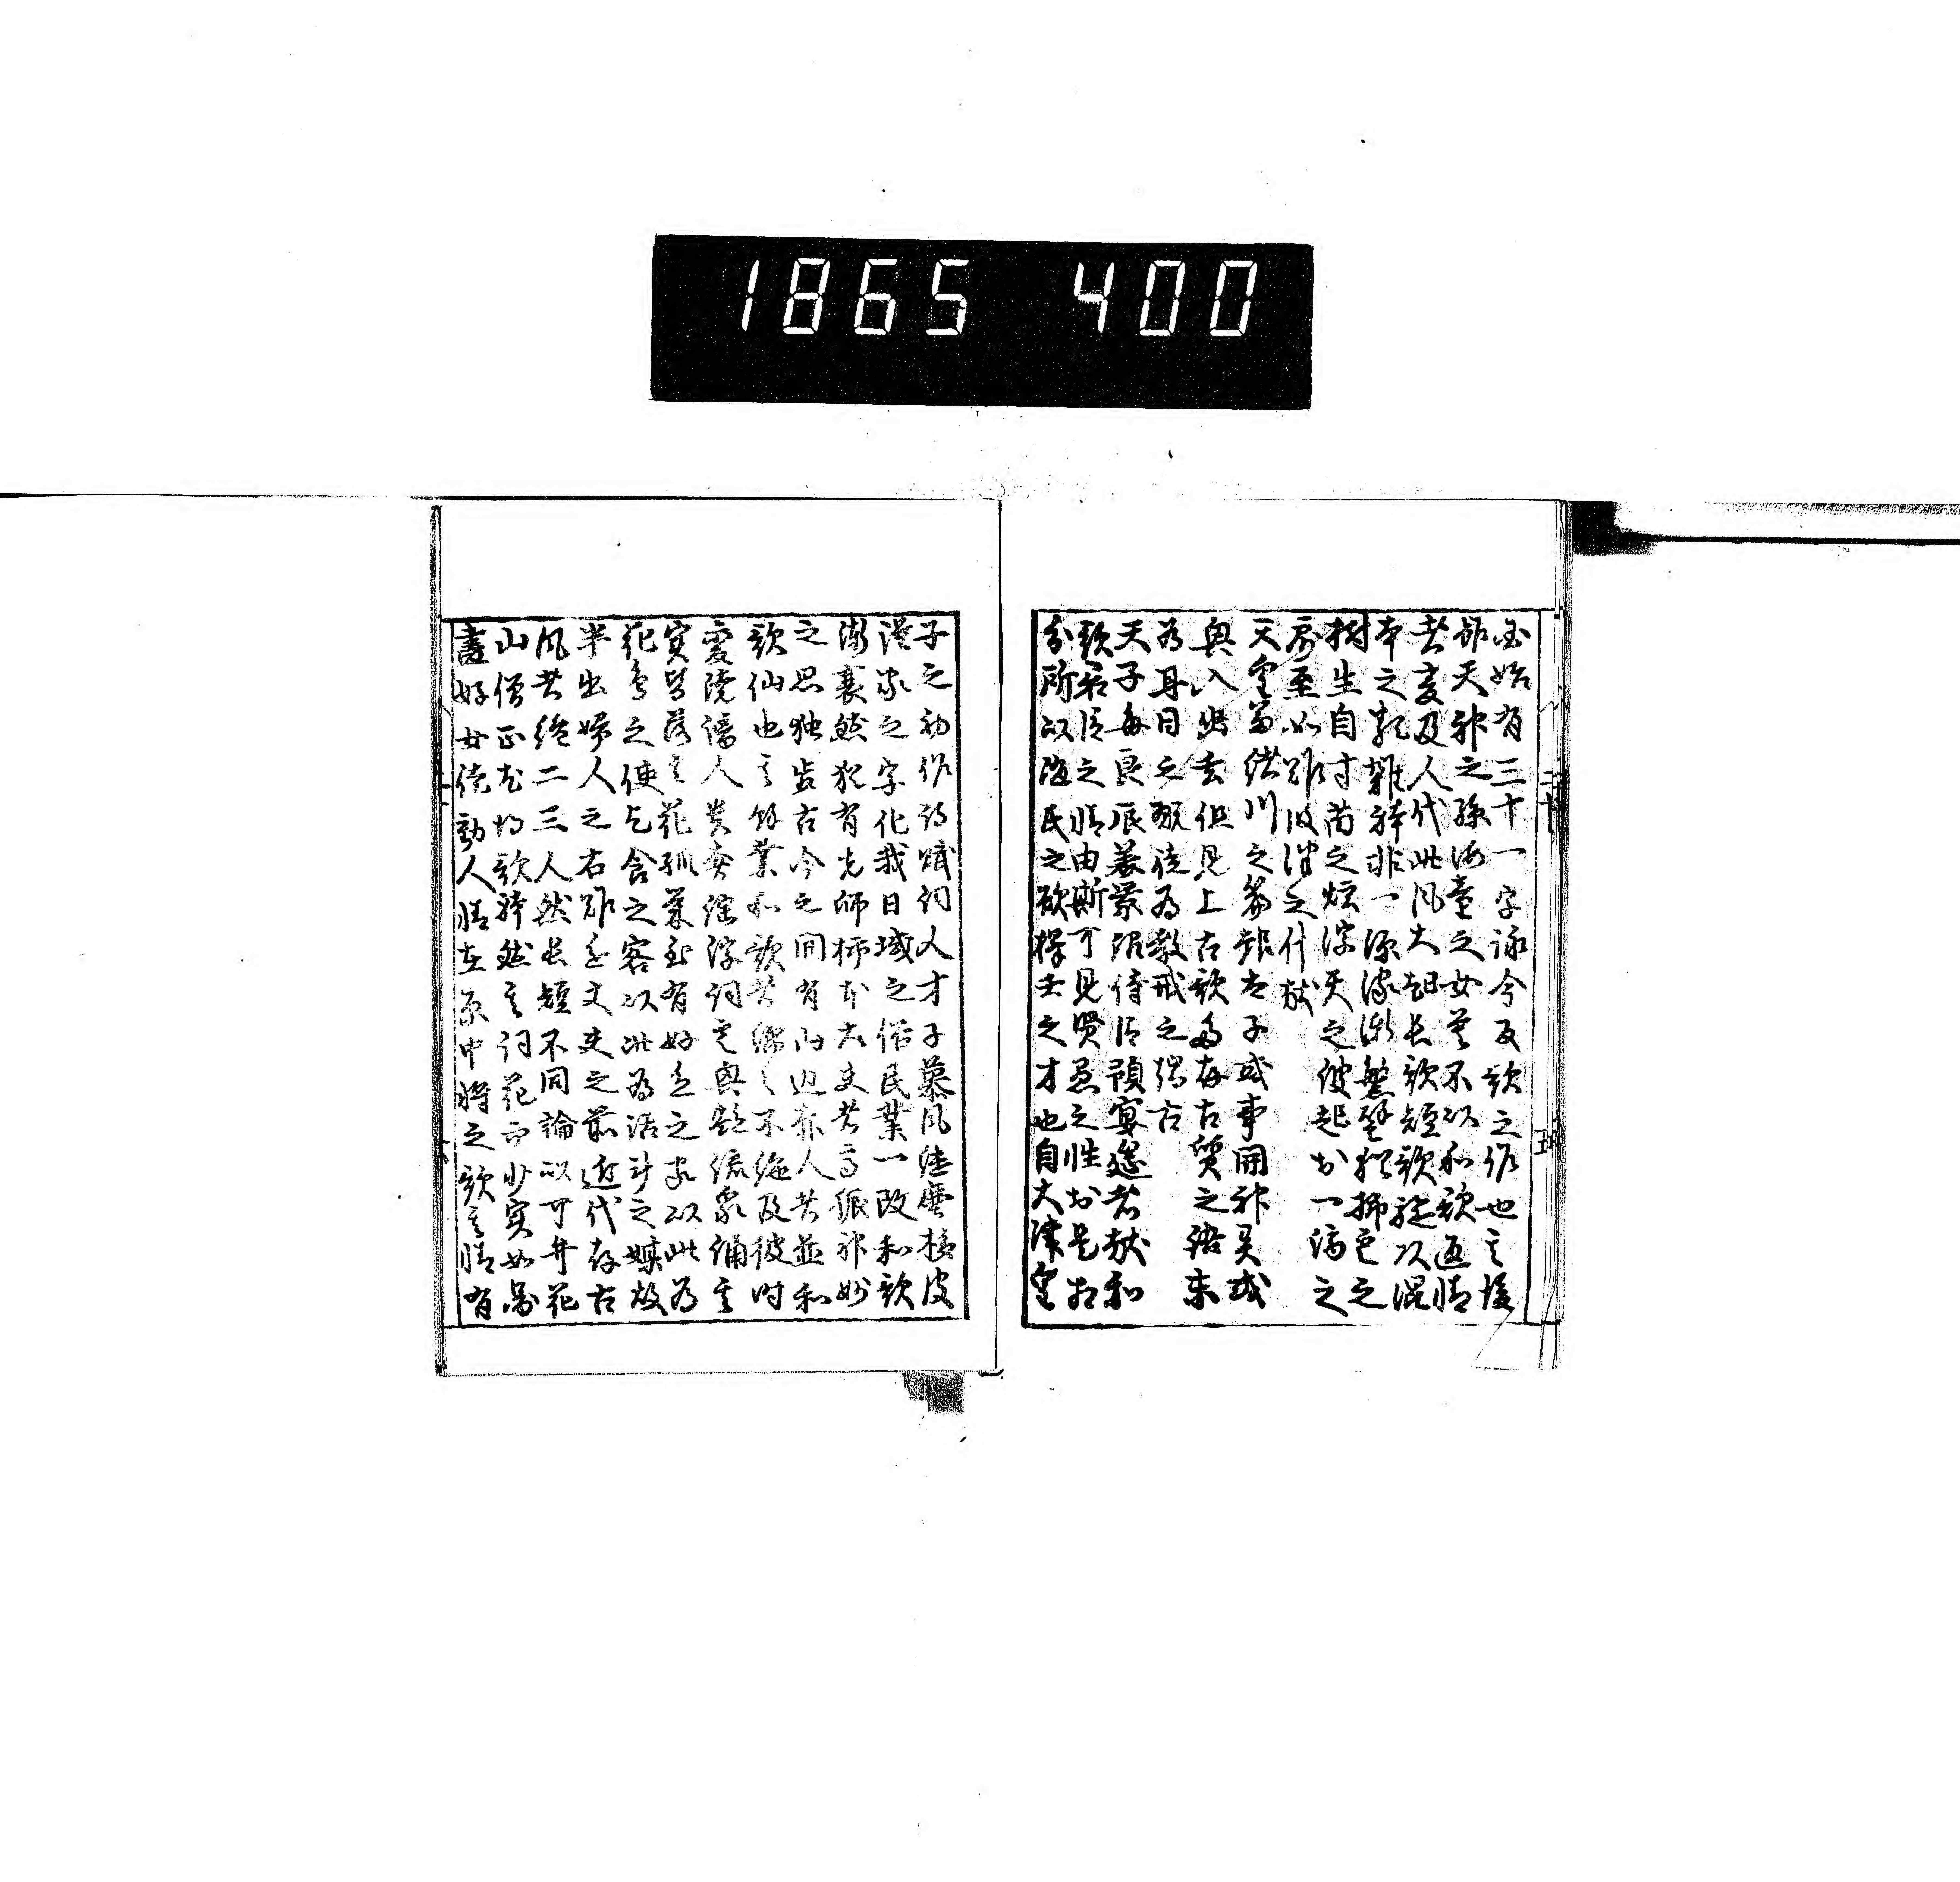 国始有三十一字詠今反歌之作也其後
雖天神之孫海童之女莫不以和歌通情
者爰及人代此風大起長歌短歌旋頭混
本之類雜躰非一源流漸繁譬猶拂雲之
樹生自寸苗之煙浮天之波起於一滴之
露至如難波津之什献
天皇富緒川之篇報太子或事関神異或
興入幽玄但見上古歌多存古質之語未
為耳目之翫徒為教戒之端古
天子毎良辰美景詔侍臣預宴筵者献和
歌君臣之情由斯可見賢愚之性於是相
分所以随民之欲擇士之才也自大津皇
子之初作詩賦詞人才子慕風継塵移彼
漢家之字化我日域之俗民業一改和歌
漸衰然猶有先師柿本大夫者高振神妙
之思独歩古今之間有山辺赤人者並和
歌仙也其餘業和歌者綿々不絶及彼時
變澆漓人貴奢淫浮詞雲興艶流泉涌其
実皆落其花孤榮至有好色之家以此為
花鳥之使乞食之客以此為活計之媒故
半出婦人之右難進丈夫之前近代存古
風者纔二三人然長短不同論以可弁花
山僧正尤得歌躰然其詞花而少実如図
畫好女徒動人情在原中将之歌其情有
1865 400